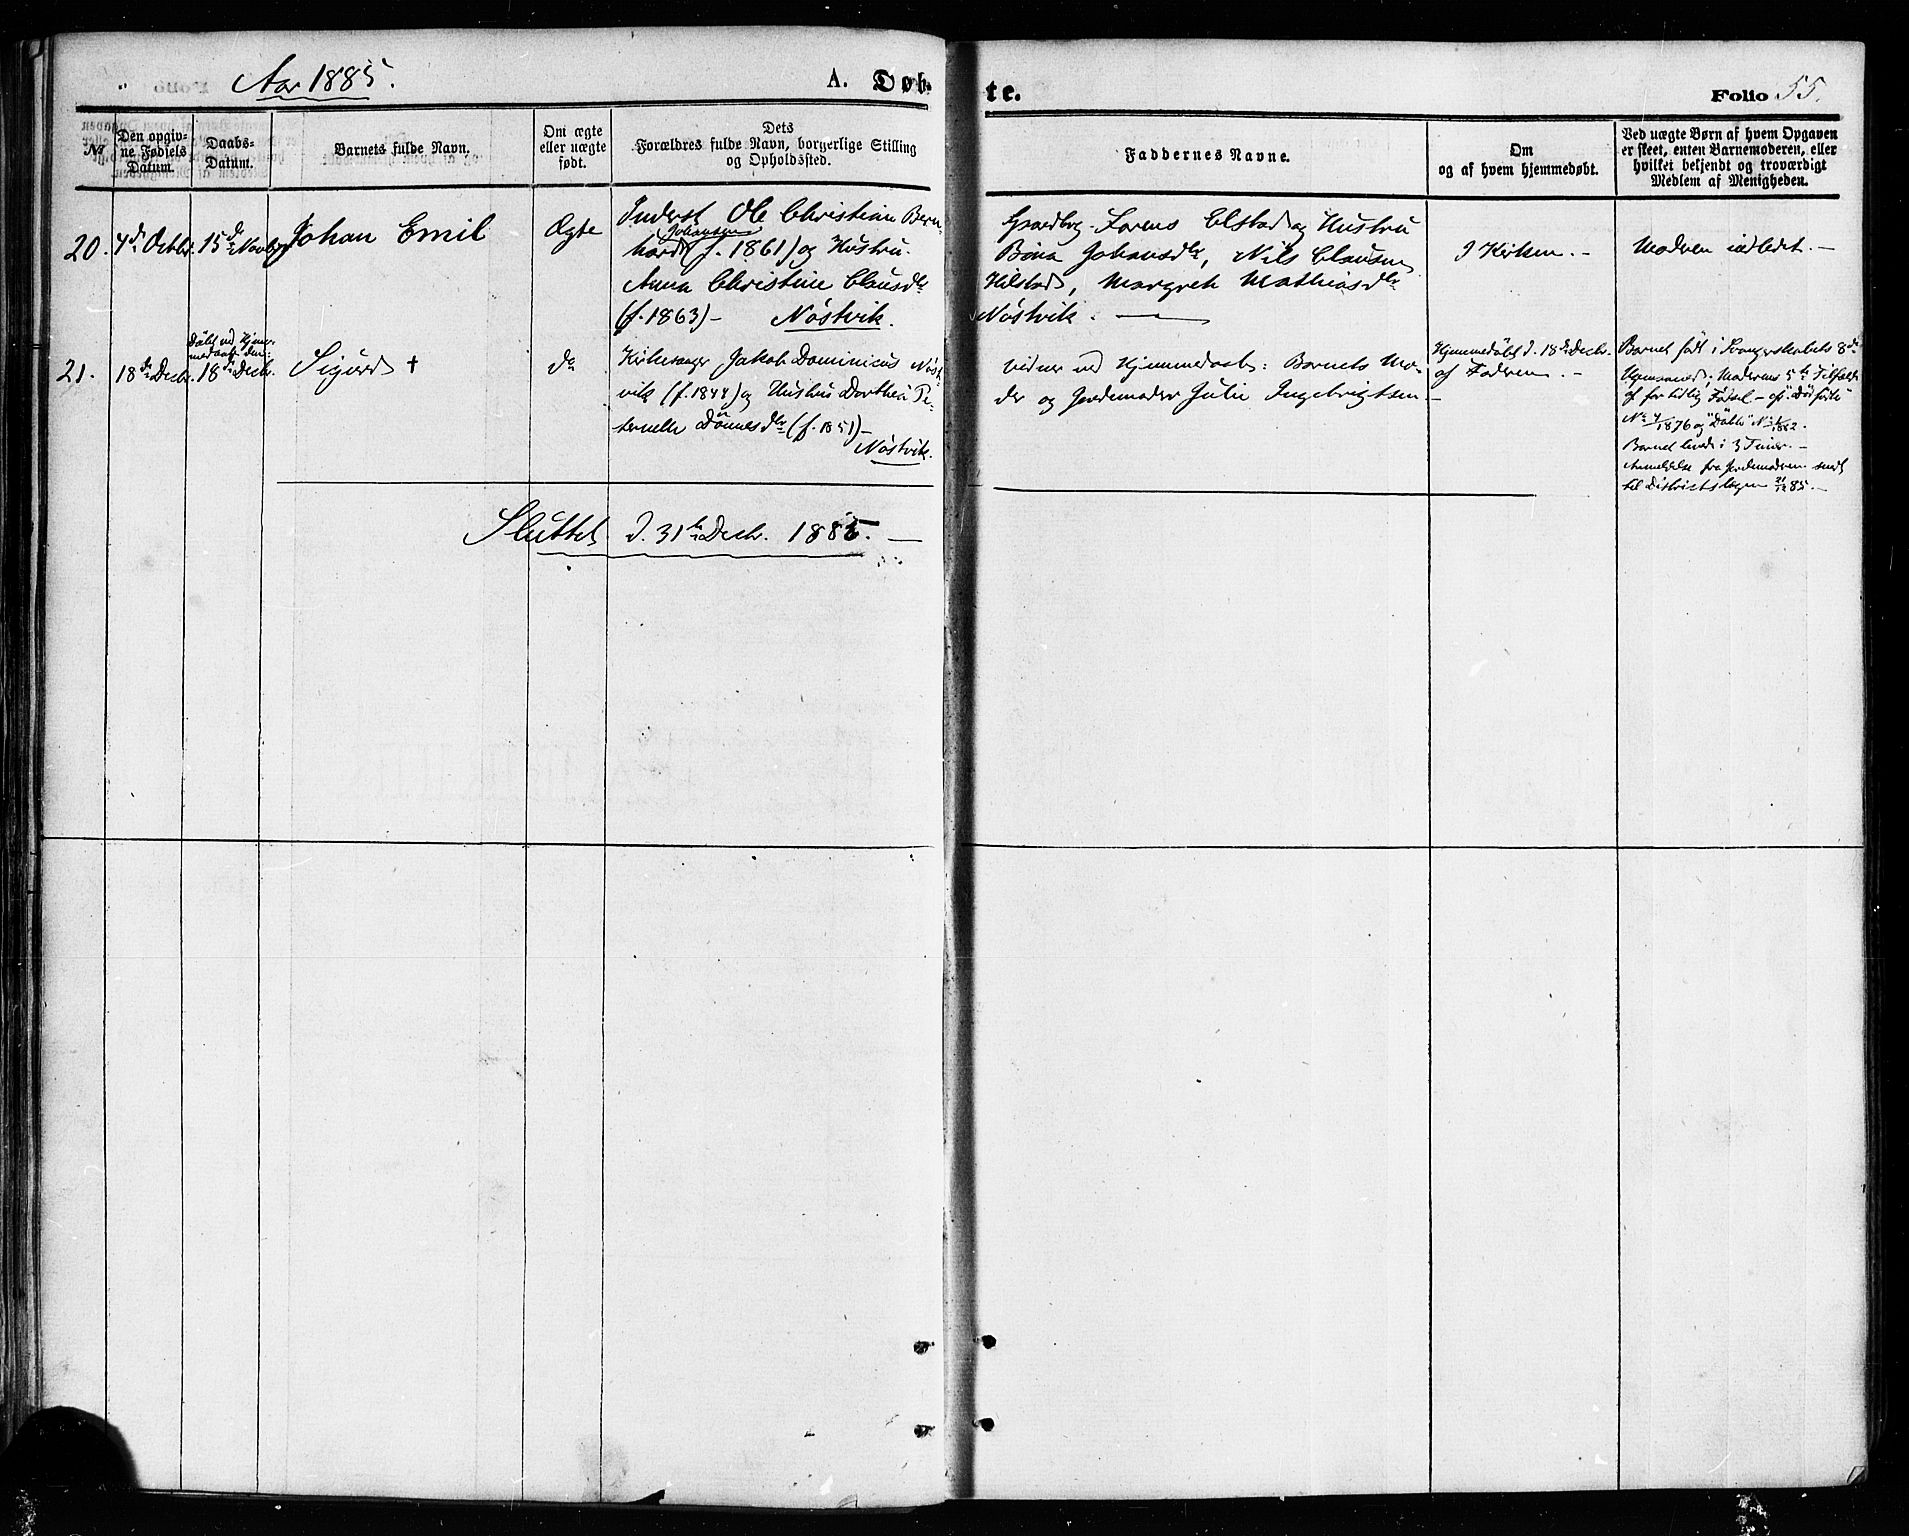 Aar 1885.
A. Døb-
te.
Folio 55.
No
Den opgiv-
ne Fødsels
Datum.
Daabs-
Datum.
Barnets fulde Navn.
Om ægte
eller uægte
født.
Dets
Forældres fulde Navn, borgerlige Stilling
og Opholdssted.
Faddernes Navne.
Om
og af hvem hjemmedøbt.
Ved uægte Børn af hvem Opgaven
er skeet, enten Barnemoderen, eller
hvilket bekjendt og troværdigt
Medlem af Menigheden.
20.
4de Octbr.
15de Novbr.
Johan Emil
Ægte
Inderst Ole Christian Bern-
hard Johansen (f. 1861) og Hustru
Anna Christine Clausdtr
(f. 1863) – Nøstvik.
Gaardbrg. Lorens Elstad og Hustru
Johansdtr, Nils Clausen
Hilstad, Margreth Mathiasdtr
Nøstvik. —
I Kirken. –
Modren indledet. –
21.
18de Decbr.
Døbt ved Hjem-
medaab den
18de Decbr.
Sigurd †
do
Kirkesanger Jakob Dominicus Nøst-
vik (f. 1844) og Hustru Dorthea Pe-
ternelle Dønnesdtr (f. 1851) –
Nøstvik.
Vidner ved Hjemmedaab: Barnets Mo-
der og Jordemoder Julie Ingebrigtsen –
Hjemmedøbt d. 18de Decbr.
af Faderen. –
Barnet født i Svangerskabets 8de
Moderens 5te Tilfælde
af for tidlig Fødsel – cfr. "Dødfødte"
No 4/1876 og "Døbte" No 1882.
Barnet levede i 3 Timer. –
Anmeldelse fra Jordemodren sendt
til Districtslægen 21/12 85. –
Sluttet d. 31te Decbr. 1885. —